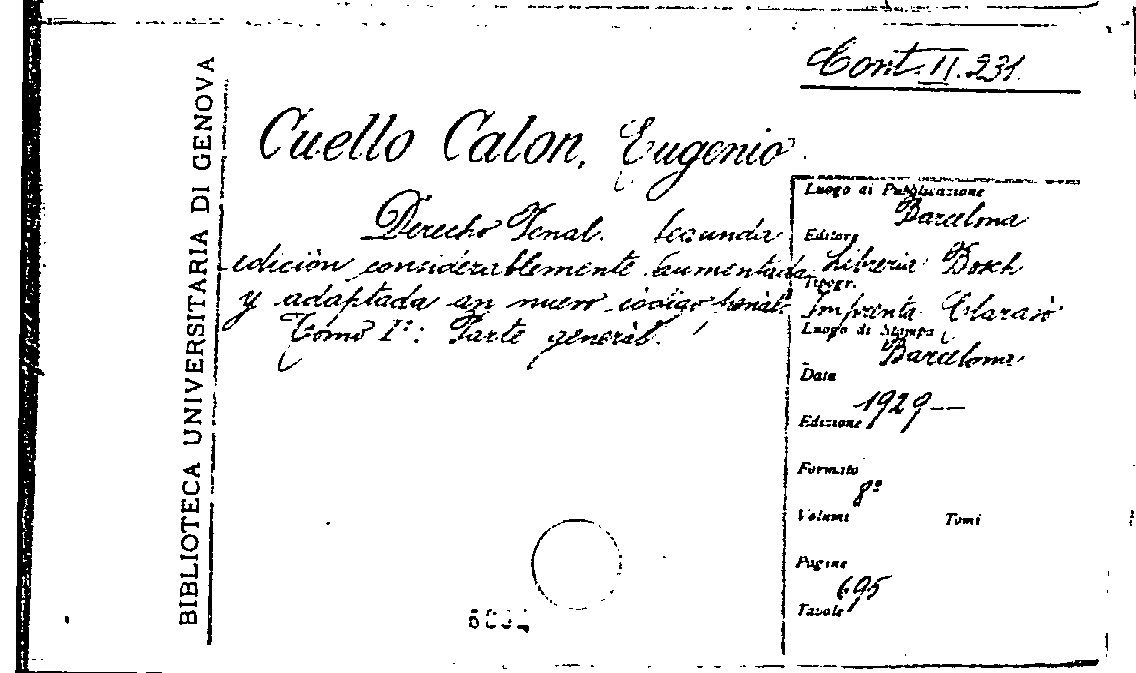 BIBLIOTECA UNIVERSITARIA DI GENOVA
Cont. II. 231.
Cuello Calon, Eugenio
Derecho Penal. Segunda
edición considerablemente aumentada
y adaptada an nuevo código penal.
Tomo Iº: Parte general.
Luogo di Pubblicazione
Barcelona
Editore
Libreria Bosch
Tipogr.
Imprenta Clarasò
Luogo di Stampa
Barcelona
Data
1929—
Edizione
Formato
8º
Volumi Tomi
Pagine
695
Tavole